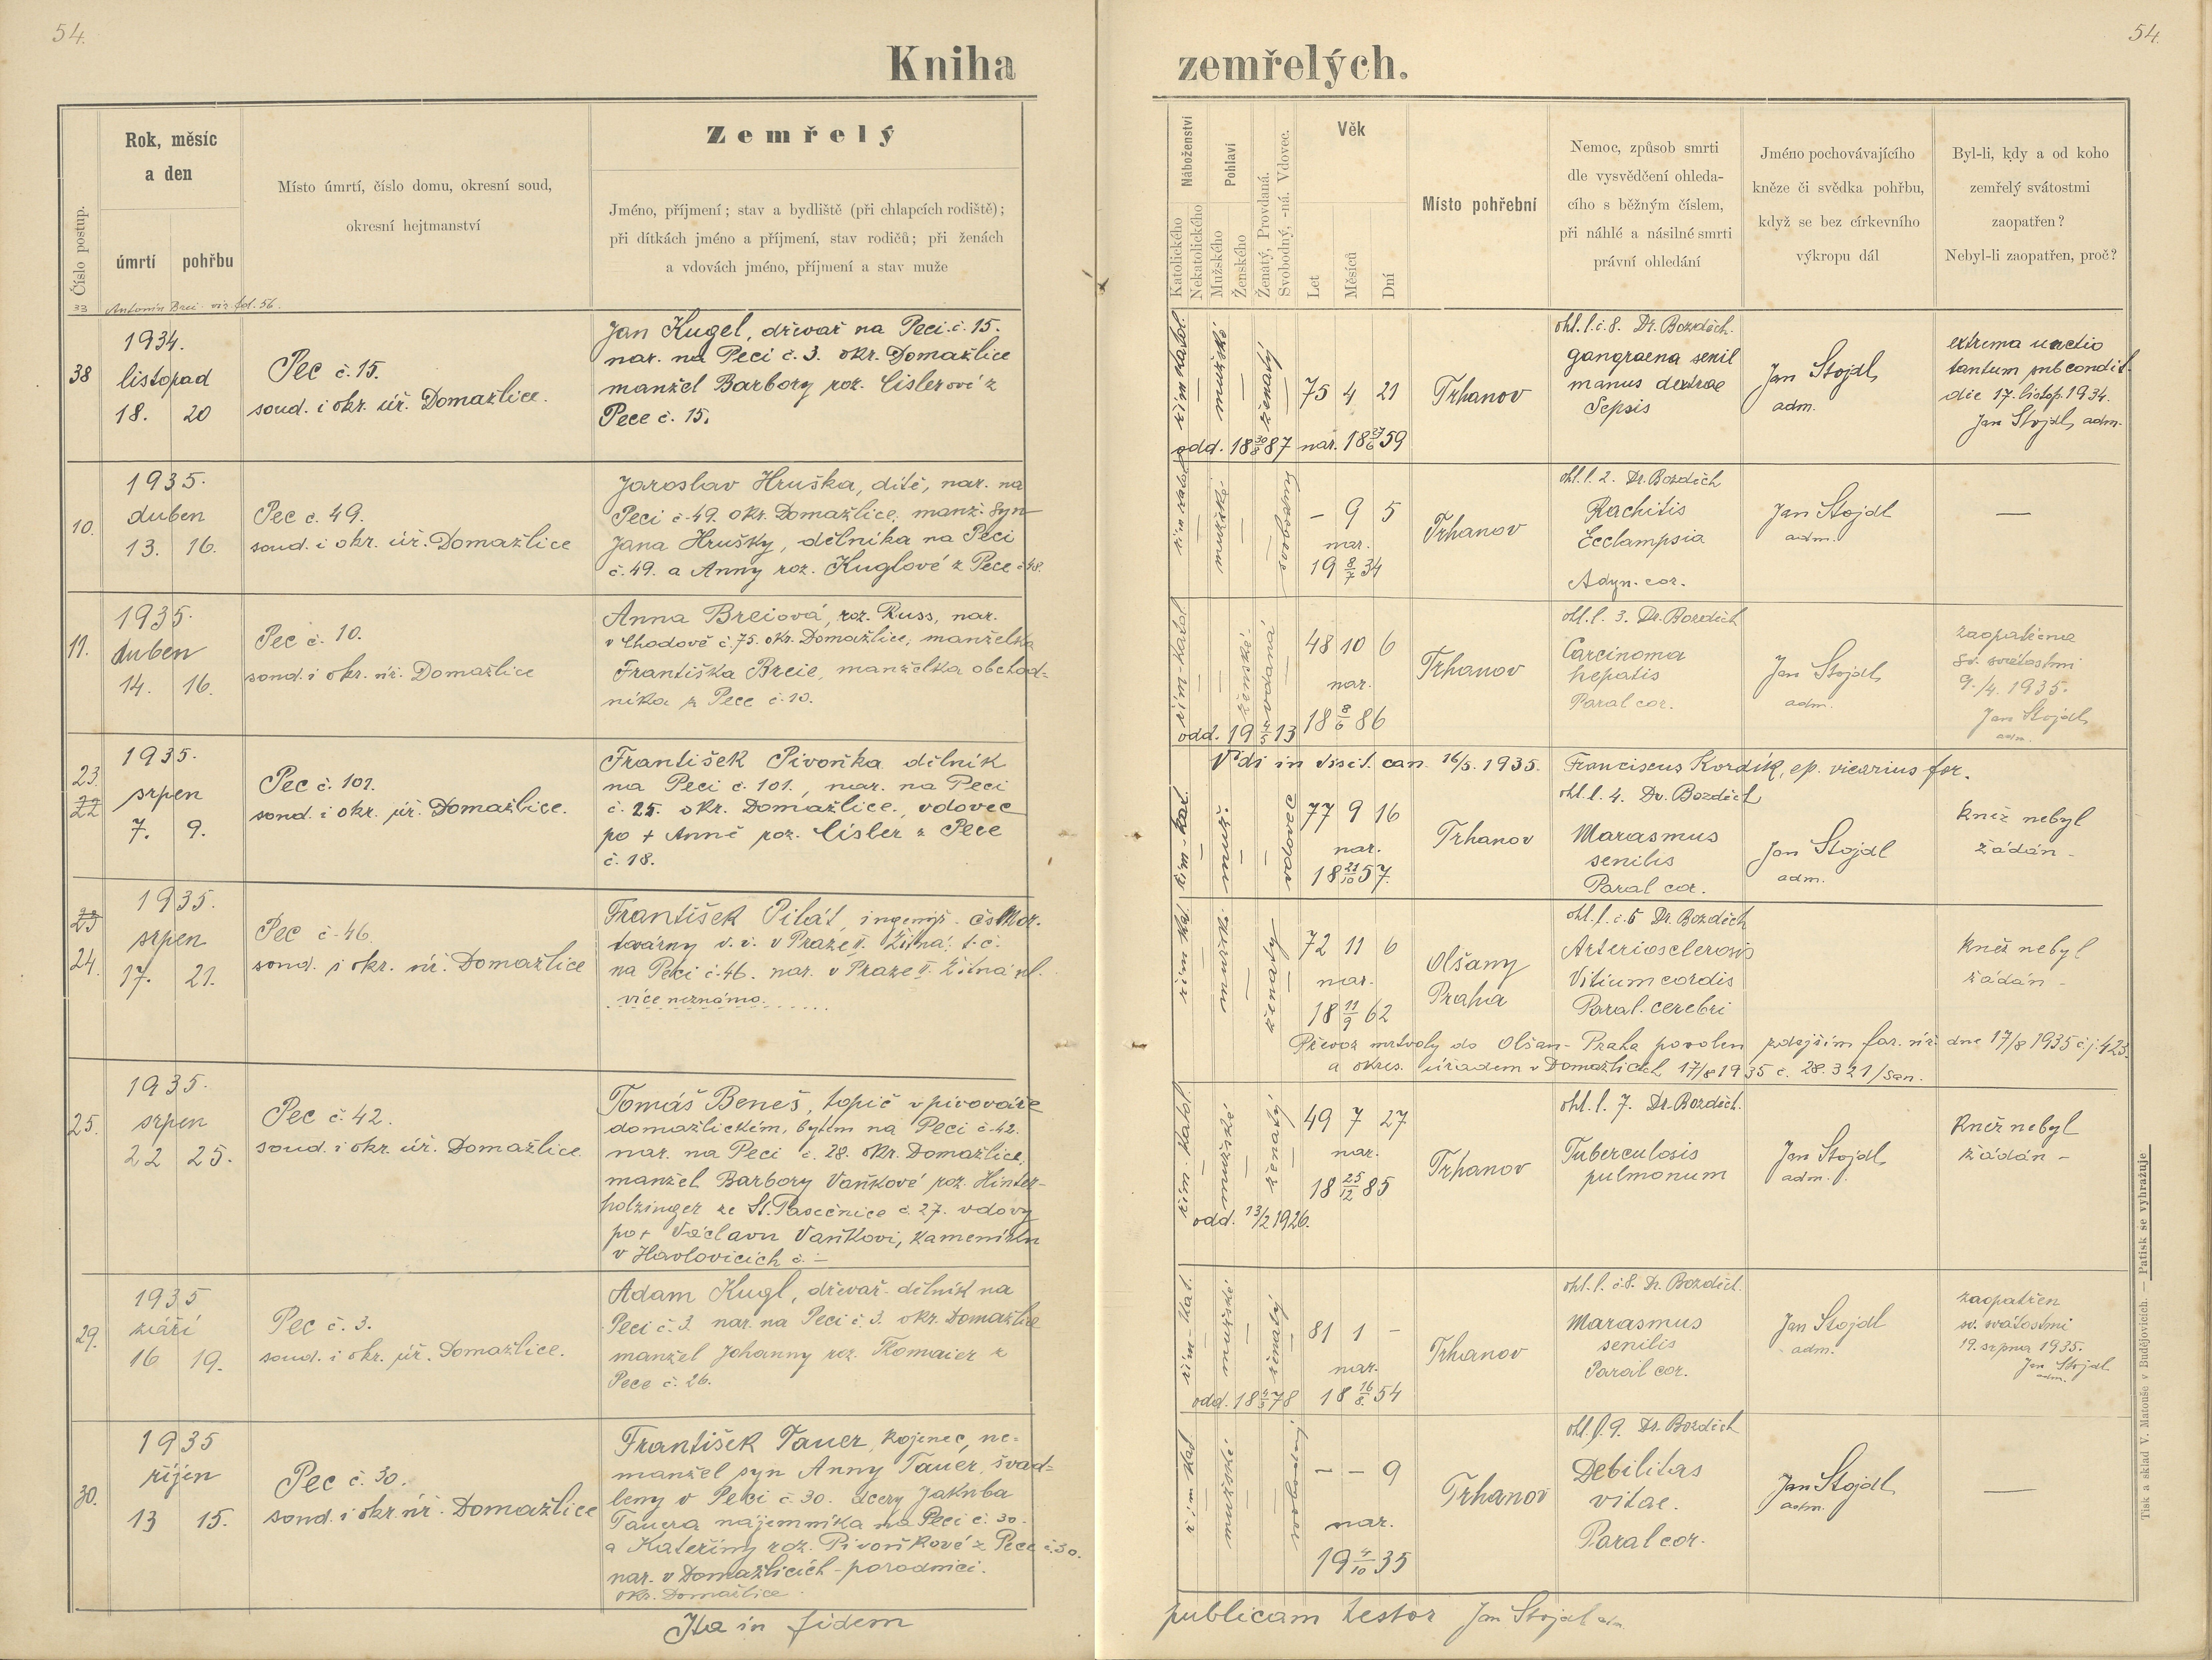 54.
Kniha
Číslo postup.
Rok, měsíc
a den
úmrtí
pohřbu
Místo úmrtí, číslo domu, okresní soud,
okresní hejtmanství
Zemřelý
Jméno, příjmení; stav a bydliště (při chlapcích rodiště);
při dítkách jméno a příjmení, stav rodičů; při ženách
a vdovách jméno, příjmení a stav muže
33 Antonín Brei viz fol. 56.
38
1934.
listopad
18. 20
Pec č. 15.
soud. i okr. úř. Domažlice.
Jan Kugel, dřevař na Peci č. 15.
nar. na Peci č. 3. okr. Domažlice
manžel Barbory roz. Cislerové z
Pece č. 15.
10.
1935.
duben
13. 16.
Pec č. 49.
soud. i okr. úř. Domažlice
Jaroslav Hruška, dítě, nar. na
Peci č. 49. okr. Domažlice, manž. syn
Jana Hrušky, dělníka na Peci
č. 49. a Anny roz. Kuglové z Pece č. 48.
11.
1935.
duben
14. 16.
Pec č. 10.
soud. i okr. úř. Domažlice
Anna Breiová, roz. Russ, nar.
v Chodově č. 75. okr. Domažlice, manželka
Františka Breie, manželka obchod=
níka z Pece č. 10.
23
22
1935.
srpen
7. 9.
Pec č. 101.
soud. i okr. úř. Domažlice.
František Pivoňka dělník
na Peci č. 101., nar. na Peci
č. 25. okr. Domažlice, vdovec
po + Anně roz. Cisler z Pece
č. 18.
23
24.
1935.
srpen
17. 21.
Pec č. 46.
soud. i okr. úř. Domažlice
František Pilát, ingenýr
továrny v. v. v Praze II. Žitná, t. č.
na Peci č. 46. nar. v Praze II. Žitná ul.
více neznámo.
25.
1935.
srpen
22 25.
Pec č. 42.
soud. i okr. úř. Domažlice
Tomáš Beneš, topič v pivováře
domažlickém, bytem na Peci č. 42.
nar. na Peci č. 28. okr. Domažlice,
manžel Barbory Vaňkové roz. Hinter-
holzinger ze St. Pasečnice č. 27. vdovy
po + Václavu Vaňkovi, kameníku
v Havlovicích č. –
29.
1935
září
16 19.
Pec č. 3.
soud. i okr. úř. Domažlice.
Adam Kugl, dřevař-dělník na
Peci č. 3. nar. na Peci č. 3. okr. Domažlice
manžel Johanny roz. z
Pece č. 26.
30.
1935
říjen
13 15.
Pec č. 30.
soud. i okr. úř. Domažlice
František Tauer, kojenec, ne=
manžel syn Anny Tauer, švad=
leny v Peci č. 30. dcery Jakuba
Tauera nájemníka na Peci č. 30.
a Kateřiny roz. Pivoňkové z Pece č. 30.
nar. v Domažlicích - porodnici.
okr. Domažlice
Ita in fidem
54.
zemřelých.
Náboženství
Katolického
Nekatolického
Pohlaví
Mužského
Ženského
Ženatý, Provdaná.
Svobodný, -ná. Vdovec.
Věk
Let
Měsíců
Dní
Místo pohřební
Nemoc, způsob smrti
dle vysvědčení ohleda-
cího s běžným číslem,
při náhlé a násilné smrti
právní ohledání
Jméno pochovávajícího
kněze či svědka pohřbu,
když se bez církevního
výkropu dál
Byl-li, kdy a od koho
zemřelý svátostmi
zaopatřen?
Nebyl-li zaopatřen, proč?
řím. katol.
mužské
ženatý
75 4 21
odd. 18 30/8 87 nar. 18 27/6 59
Trhanov
ohl. l. č. 8. Dr. Bozděch.
gangraena senil
manus dextrae
Sepsis
Jan Stojdl,
adm.
extrema unctio
tantum sub condit.
die 17. listop. 1934.
Jan Stojdl, adm.
řím. katol.
mužské
svobodný
– 9 5
nar.
19 8/7 34
Trhanov
ohl. l. 2. Dr. Bozděch
Rachitis
Ecclampsia
Adyn. cor.
Jan Stojdl
adm.
—
řím-katol
ženské
vdaná
48 10 6
nar.
18 8/6 86
odd. 19 13
Trhanov
ohl. l. 3. Dr. Bozděch
Carcinoma
hepatis
Paral cor.
Jan Stojdl,
adm.
zaopatřena
sv. svátostmi
9./4. 1935.
Jan Stojdl,
adm.
Vidi in visit. can. 16/5. 1935. Franciscus Kordík, ep. vicarius for.
řím-kat.
muž.
vdovec
77 9 16
nar.
18 21/10 57.
Trhanov
ohl. l. 4. Dr. Bozděch
Marasmus
senilis
Paral cor.
Jan Stojdl
adm.
Kněz nebyl
žádán –
řím. ka.
mužské
ženatý
72 11 6
nar.
18 11/9 62
Olšany
Praha
ohl. l. č. 5 Dr. Bozděch
Arteriosclerosis
Vitium cordis
Paral. cerebri
Kněz nebyl
žádán –
Převoz mrtvoly do Olšan - Praha povolen zdejším far. úř. dne 17/8 1935 č. j. 423.
a okres. úřadem v Domažlicích 17/8 1935 č. 28.321/San.
řím-katol.
mužské
ženatý
49 7 27
nar.
18 25/12 85
odd. 13/2 1926.
Trhanov
ohl. l. 7. Dr. Bozděch.
Tuberculosis
pulmonum
Jan Stojdl,
adm.
Kněz nebyl
žádán –
řím-kat.
mužské
ženatý
81 1 –
nar.
odd. 18 78 18 16/8. 54
Trhanov
ohl. l. č. 8. Dr. Bozděch.
Marasmus
senilis
Paral cor.
Jan Stojdl
adm.
zaopatřen
sv. svátostmi
19. srpna 1935.
Jan Stojdl
adm.
řím kat
mužské
svobodný
– – 9
nar.
19 4/10 35
Trhanov
ohl. l. 9. Dr. Bozděch
Debilitas
vitae.
Paral cor.
Jan Stojdl,
adm.
—
publicam testor Jan Stojdl adm.
Tisk a sklad V. Matouše v Budějovicích. — Patisk se vyhražuje